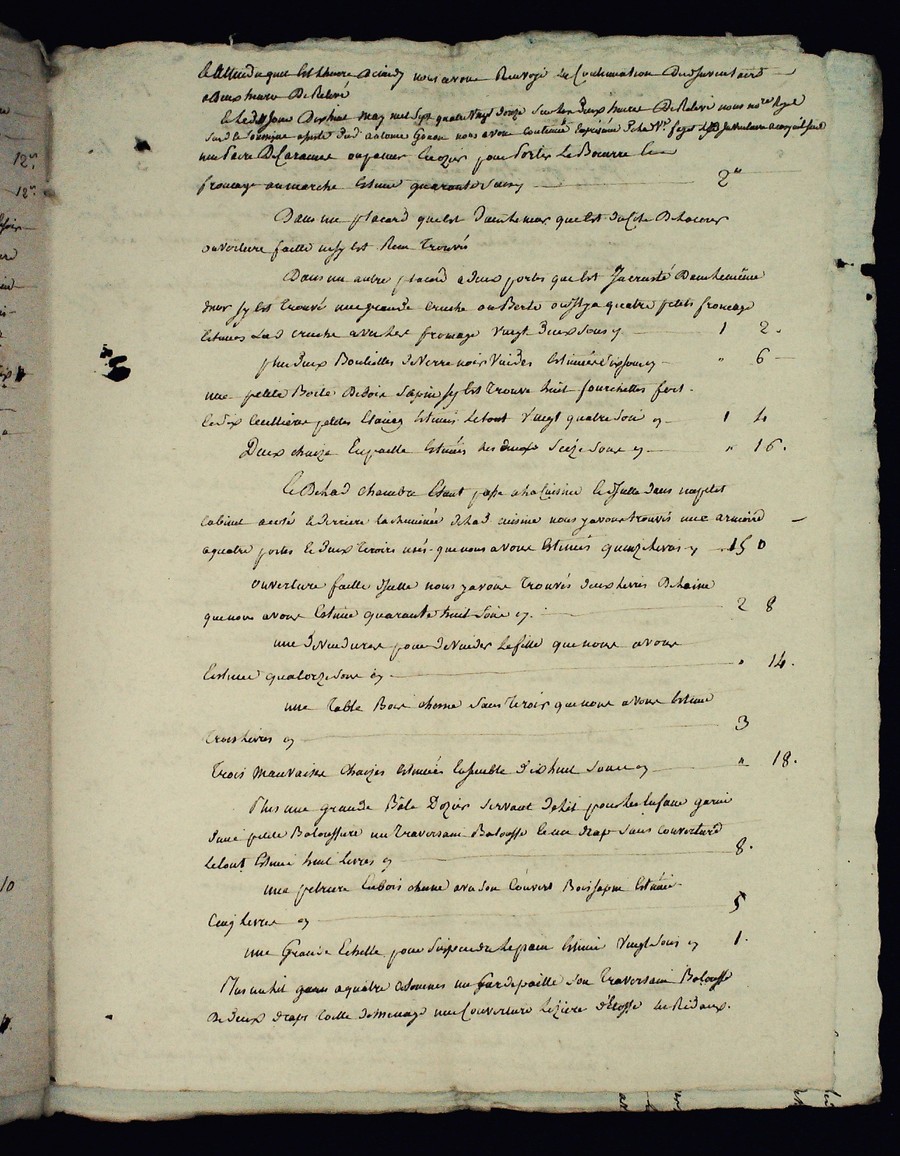 et attendu quil est lheure de midy nous avons Renvoyé la Continuation Dud inventaire
a deux heures De Relevé
Et led jour Dix huit may mil sept quatre vingt douze sur les deux heures De Relevé nous no.re Royal
nous avons continué
une Paire De Caranes ou panier En ozier pour Porter Le Beurre Et
fromage au marché Estimé quarante sous 2"
Dans un placard quy Est Dans le mur quy Est du Cité De
ouverture faitte ny Est Rien Trouvés
Dans un autre placard a deux portes quy Est Incrusté Dans le même
mur sy Est trouvé une grande Cruche ou Berte ou il y a quatre petits fromage
Estimés Lad cruche avec les fromage Vingt deux sous cy 1 2.
plus deux Bouteilles de verre noir Vuides Estimés six sous cy " 6
une petite Boete De Bois Sapin sy Est Trouvé huit fourchettes fert
et six Ceuillieres petites Etaing Estimés le tout Vingt quatre sous cy 1 4
Deux chaize En paille Estimés les deux Seize sous cy " 16.
Et De lad chambre Etant passé a la Cuisine Ensuitte dans un petit
Cabinet a coté et derriere la cheminée de lad cuisine nous y avons trouvés une armoire
a quatre portes et deux tiroirs usés que nous avons Estimés quinze livres cy 15 0
ouverture faitte dicelle nous y avons Trouvés deux livres De laine
que nous avons Estimé quarante huit sous cy 2 8
une devidoire pour devider Le fille que nous avons
Estimé quatorze sous cy " 14.
une Table Bois chesne sans tiroir que nous avons Estimé
trois livres cy 3
Trois mauvaise chaizes Estimées Ensemble dix huit sous cy " 18.
Plus une grande Bâle Dozier servant de lit pour les Enfans garni
dune petite Baloussiere un traversain Balousse et un drap sans couverture
le tout Estimé huit livres cy 8.
une petriere En bois chesne avec son couvert Bois sapin Estimé
Cinq livres cy 5
une Grande Echelle pour Suspendre Le pain Estimé Vingt sous cy 1.
Plus un lit garni a quatre Colonnes un gardepaille son traversain Balousse
De deux draps toille de menage une Couverture Lizière d'Etoffe les Rideaux.